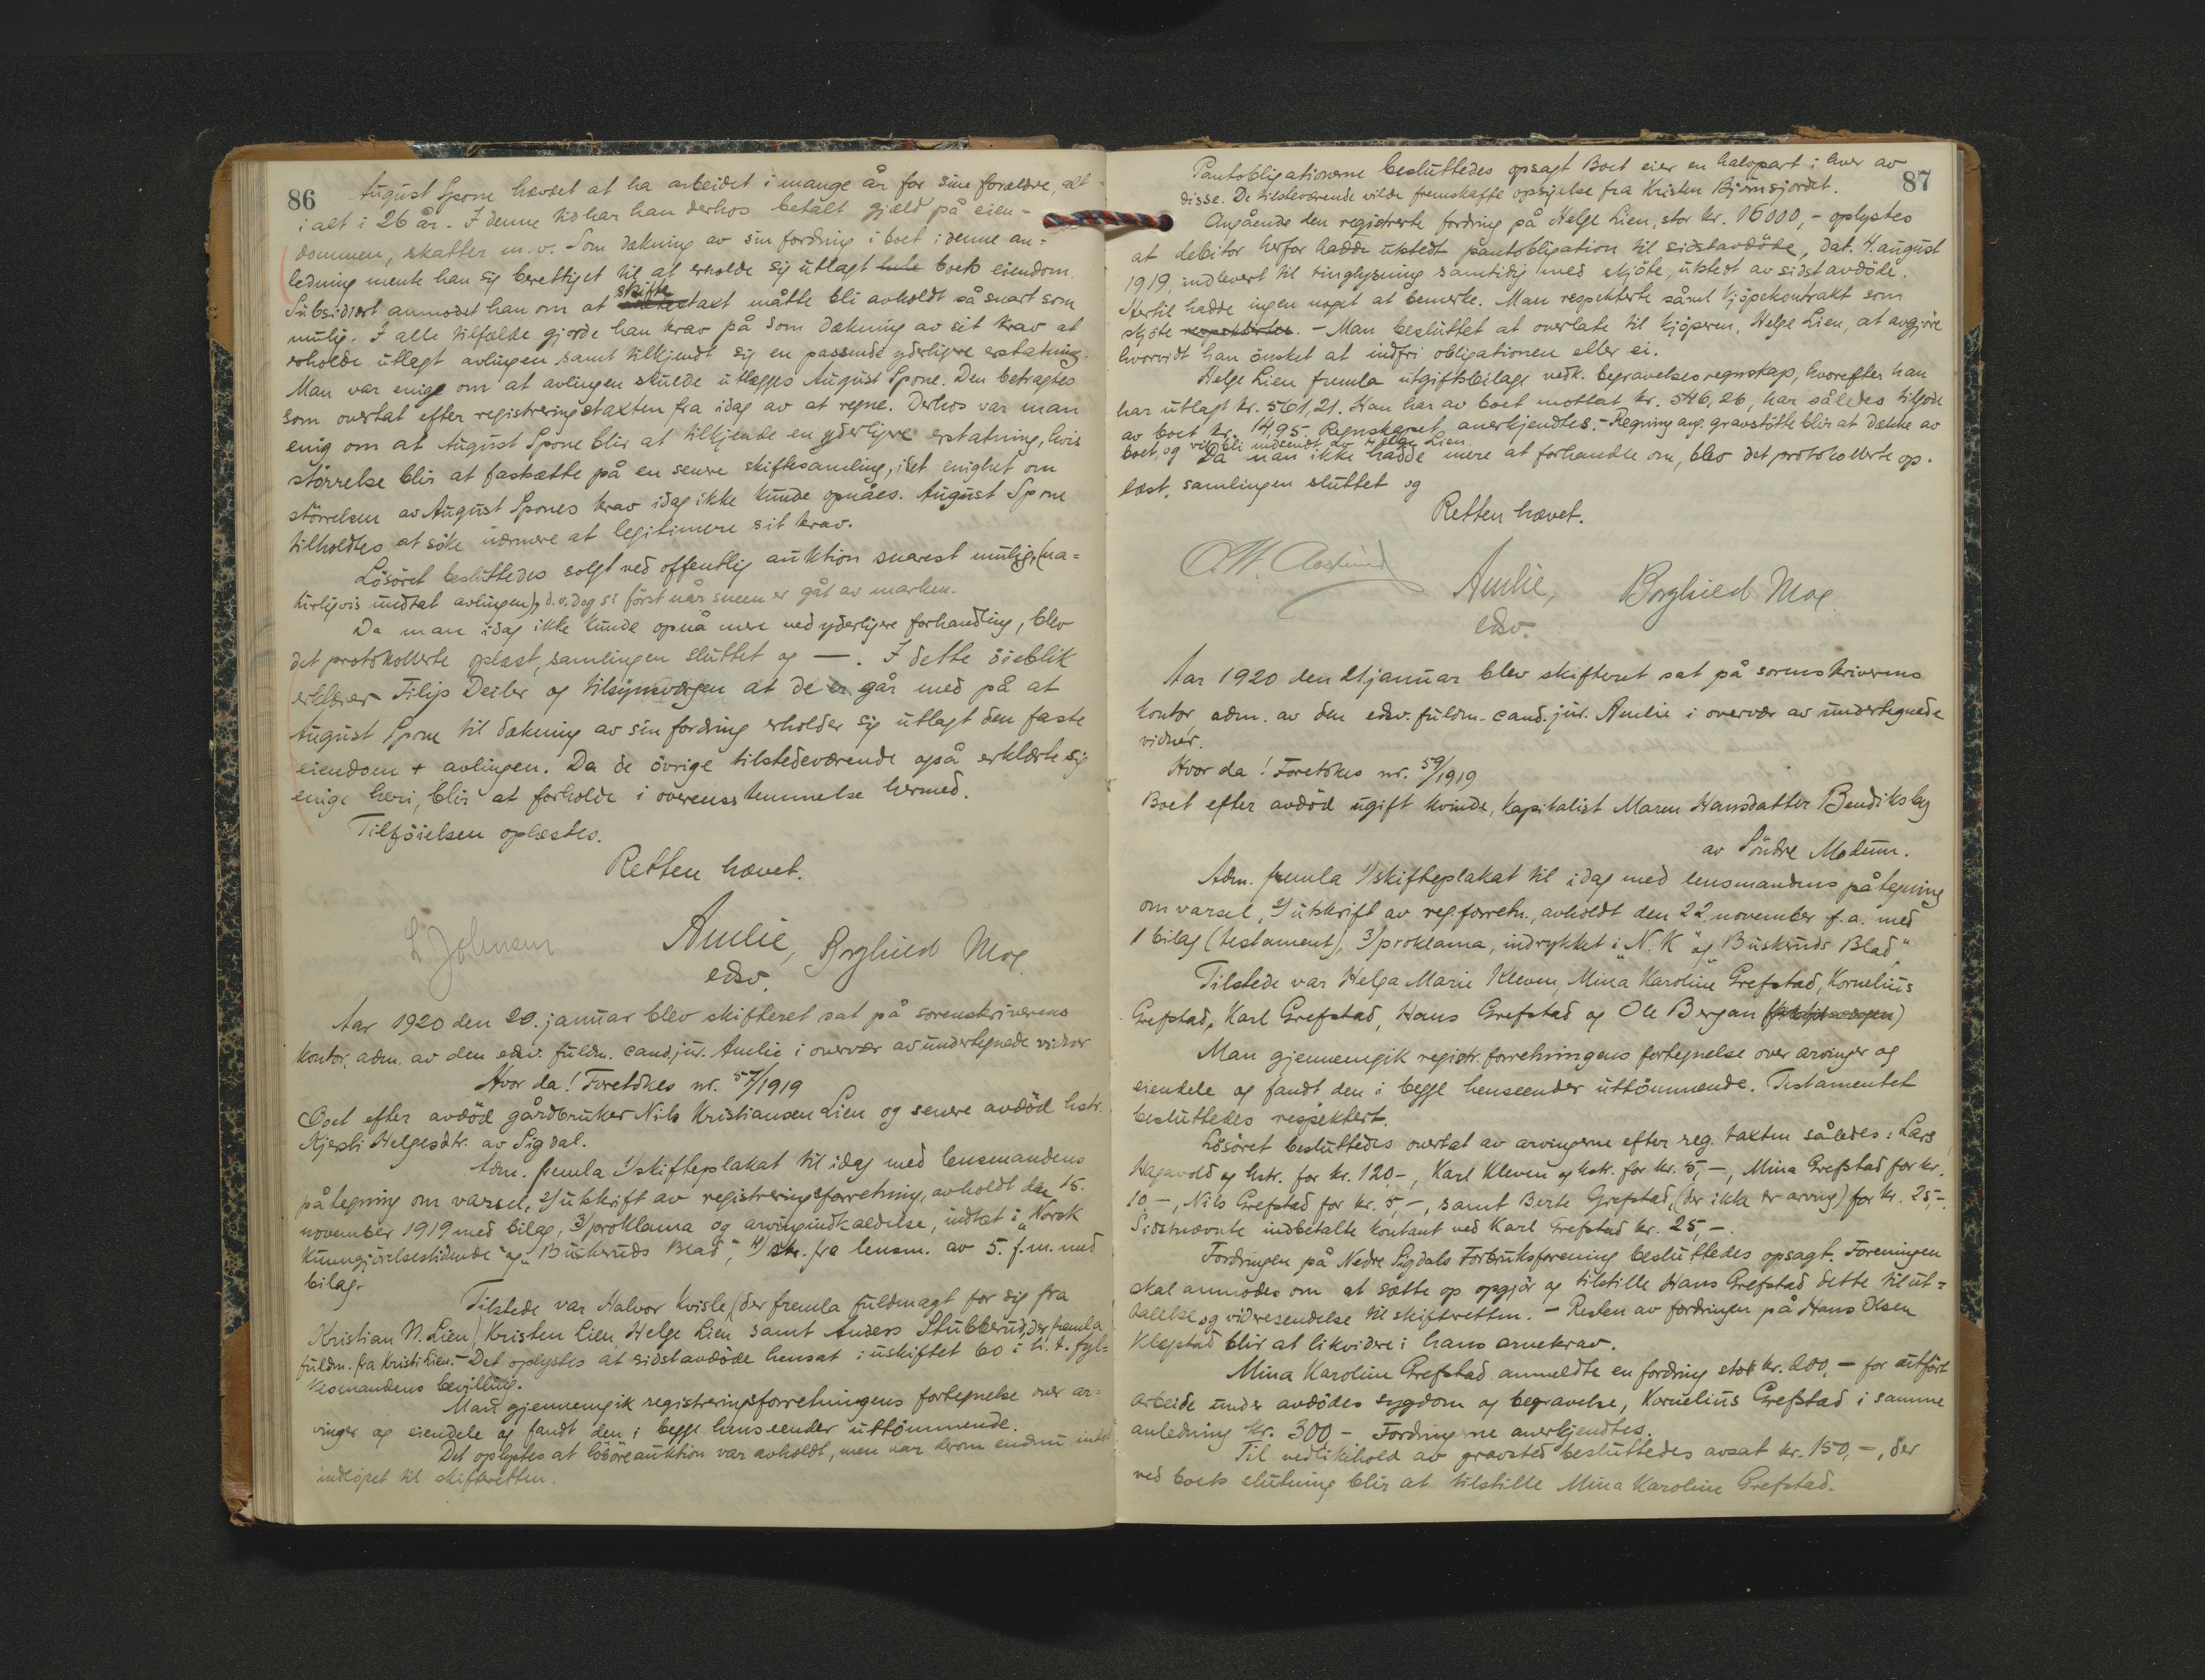 86
August Spone hævdet at ha arbeidet i mange år for sine forældre, alt
i alt i 26 år. I denne tid har han derhos betalt gjæld på eien-
dommen, skatter m.v. Som dækning av sin fordring i boet i denne an-
ledning mente han sig berettiget til at erholde sig utlagt hele boets eiendom.
Subsidiært anmodet han om at skiftetaxt måtte bli avholdt så snart som
mulig. I alle tilfælde gjorde han krav på som dækning av sit krav at
erholde utlagt avlingen samt tilkjendt sig en passende yderligere erstatning.
Man var enige om at avlingen skulde utlægges August Spone. Den betragtes
som overtat efter registreringstaxten fra idag av at regne. Derhos var man
enig om at August Spone blir at tilkjende en yderligere erstatning, hvis
størrelse blir at fastsætte på en senere skiftesamling, idet enighet om
størrelsen av August Spones krav idag ikke kunde opnåes. August Spone
tilholdtes at søke nærmere at legitimere sit krav.
Løsøret besluttedes solgt ved offentlig auktion snarest mulig, (na-
turligvis undtat avlingen), d.v. dog si først når sneen er gåt av marken.
Da man idag ikke kunde opnå mere ved yderligere forhandling, blev
det protokollerte oplæst, samlingen sluttet og —. I dette øieblik
erklærer Filip Deiler og tilsynsværgen at de er går med på at
August Spone til dækning av sin fordring erholder sig utlagt den faste
eiendom + avlingen. Da de øvrige tilstedeværende også erklærte sig
enige heri, blir at forholde i overensstemmelse hermed.
Tilføielsen oplæstes.
Retten hævet.
L Johnsen Amlie, Borghild Moe.
edsv.
Aar 1920 den 20. januar blev skifteret sat på sorenskriverens
kontor, adm. av den edsv. fuldm. cand. jur. Amlie i overvær av undertegnede vidner
Hvor da! Foretokes nr. 57/1919
Boet efter avdød gårdbruker Nils Kristiansen Lien og senere avdød hstr.
Kjersti Helgesdtr. av Sigdal.
Adm. fremla 1/ skifteplakat til idag med lensmandens
påtegning om varsel, 2/ utskrift av registreringsforretning, avholdt den 15.
november 1919 med bilag, 3/ proklama og arvingindkaldelse, indtat i „Norsk
Kunngjørelsestidende" og „Buskeruds Blad", 4/ skr. fra lensm. av 5. f.m. med
bilag.
Tilstede var Halvor Kvisle (der fremla fuldmagt for sig fra
Kristian N. Lien) Kristen Lien Helge Lien samt Anders Stubberud, der fremla
fuldm. fra Kristi Lien. - Det oplystes at sidstavdøde hensat i uskiftet bo i h. t. fyl-
kesmandens bevilling.
Man gjennemgik registreringsforretningens fortegnelse over ar-
vinger og eiendele og fandt den i begge henseender uttømmende.
Det oplystes at løsøreauktion var avholdt, men var derom endnu intet
indløpet til skifteretten.
87
Pantobligationerne besluttedes opsagt Boet eier en halvpart i hver av
disse. De tilstedeværende vilde fremskaffe opsigelse fra Kristen Bjørnsjordet.
Angående den registrerte fordring på Helge Lien, stor kr. 16000,- oplystes
at debitor herfor hadde utstedt pantobligation til sidstavdøde, dat. 4. august
1919, indlevert til tinglysning samtidig med skjøte, utstedt av sidstavdøde.
Hertil hadde ingen noget at bemerke. Man respekterte såvel kjøpekontrakt som
skjøte respektertes. - Man besluttet at overlate til kjøperen, Helge Lien, at avgjøre
hvorvidt han ønsket at indfri obligationen eller ei.
Helge Lien fremla utgiftsbilage vedk. begravelsesregnskap, hvorefter han
har utlagt kr. 561,21. Han har av boet mottat kr. 546,26, har således tilgode
av boet kr. 14,95. Regnskapet anerkjendtes. - Regning ang. gravstøtte blir at dække av
boet, og vil bli indsendt av Helge Lien.
Da man ikke hadde mere at forhandle om, blev det protokollerte op-
læst, samlingen sluttet og
Retten hævet.
Amlie, Borghild Moe.
edsv.
Aar 1920 den 21 januar blev skifteret sat på sorenskriverens
kontor adm. av den edsv. fuldm. cand. jur. Amlie i overvær av undertegnede
vidner.
Hvor da! Foretokes nr. 59/1919
Boet efter avdød ugift kvinde, kapitalist Maren Hansdatter Bendiksby
av Søndre Modum.
Adm. fremla 1/ skifteplakat til idag med lensmandens påtegning
om varsel, 2/ utskrift av reg. forretn., avholdt den 22 november f.a. med
1 bilag (testament), 3/ proklama, indrykket i „N. K" og „Buskeruds Blad"
Tilstede var Helga Marie Kleven, Mina Karoline Grefstad, Kornelius
Grefstad, Karl Grefstad, Hans Grefstad og Ole Bergan
Man gjennemgik registr. forretningens fortegnelse over arvinger og
eiendele og fandt den i begge henseender uttømmende. Testamentet
besluttedes respektert.
Løsøret besluttedes overtat av arvingerne efter reg. taxten således: Lars
Hagavold og hstr. for kr. 120,-, Karl Kleven og hstr. for kr. 5,-, Mina Grefstad for kr.
10,-, Nils Grefstad for kr. 5,-, samt Berte Grefstad, (der ikke er arving) for kr. 25,-.
Sidstnævnte indbetalte kontant ved Karl Grefstad kr. 25,-.
Fordringen på Nedre Sigdals Forbruksforening besluttedes opsagt. Foreningen
skal anmodes om at sætte op opgjør og tilstille Hans Grefstad dette til ut-
talelse og videresendelse til skifteretten. - Resten av fordringen på Hans Olsen
Klopstad blir at likvidere i hans arvekrav.
Mina Karoline Grefstad anmeldte en fordring stor kr. 200,- for utført
arbeide under avdødes sygdom og begravelse, Kornelius Grefstad i samme
anledning kr. 300 - Fordringerne anerkjendtes.
Til vedlikehold av gravsted besluttedes avsat kr. 150,-, der
ved boets slutning blir at tilstille Mina Karoline Grefstad.